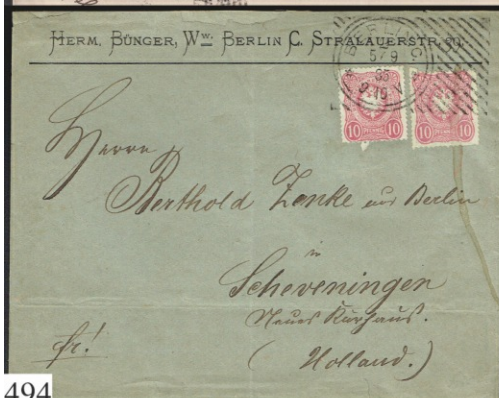 HERM. BÜNGER, Ww. BERLIN C. STRALAUERSTR.
BERLIN C
5/9
85
8-9
10 10
Herrn
Berthold Zenke aus Berlin
in
Scheveningen
Neues Kurhaus.
fr!
(Holland.)
494